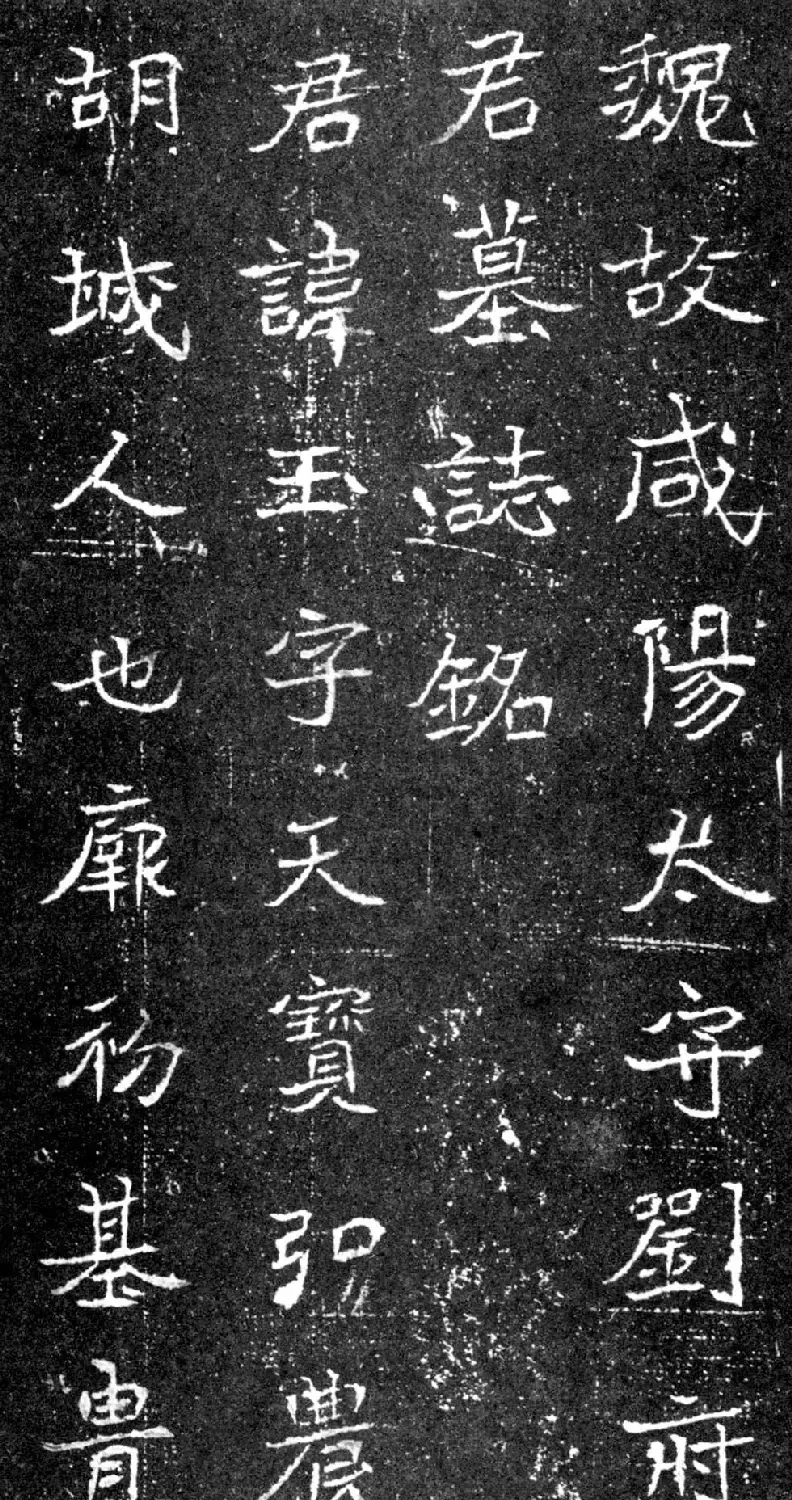 魏故咸陽太守劉府
君墓誌銘
君諱玉字天寶弘農
胡城人也厥初基胄